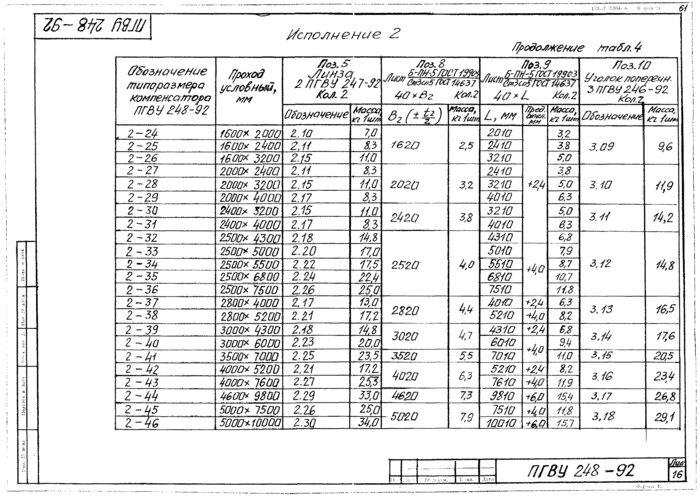 ПГВУ 248-92
61
Исполнение 2
Продолжение табл. 4
Обозначение типоразмера компенсатора ПГВУ 248-92
Проход условный, мм
Поз. 5 Линза 2 ПГВУ 247-92 Кол. 2
Поз. 8 Лист Б-ПН-5 ГОСТ 19903 Ст3сп5 ГОСТ 14637 40×B₂ Кол. 2
Поз. 9 Лист Б-ПН-5 ГОСТ 19903 Ст3сп5 ГОСТ 14637 40×L Кол. 2
Поз. 10 Уголок поперечн. 3 ПГВУ 246-92 Кол. 2
Обозначение Масса, кг 1 шт. B₂ Масса, кг 1 шт. L, мм Пред. откл. мм Масса, кг 1 шт. Обозначение Масса, кг 1 шт.
2-24 1600×2000 2.10 7,0 2010 3,2
2-25 1600×2400 2.11 8,3 1620 2,5 2410 3,8 3.09 9,6
2-26 1600×3200 2.15 11,0 3210 5,0
2-27 2000×2400 2.11 8,3 2410 3,8
2-28 2000×3200 2.15 11,0 2020 3,2 3210 +2,4 5,0 3.10 11,9
2-29 2000×4000 2.17 8,3 4010 6,3
2-30 2400×3200 2.15 11,0 2420 3,8 3210 5,0 3.11 14,2
2-31 2400×4000 2.17 8,3 4010 6,3
2-32 2500×4300 2.18 14,8 4310 6,8
2-33 2500×5000 2.20 17,0 5010 7,9
2-34 2500×5500 2.22 17,5 2520 4,0 5510 +4,0 8,7 3.12 14,8
2-35 2500×6800 2.24 22,4 6810 10,7
2-36 2500×7500 2.26 25,0 7510 11,8
2-37 2800×4000 2.17 13,0 2820 4,4 4010 +2,4 6,3 3.13 16,5
2-38 2800×5200 2.21 17,2 5210 +4,0 8,2
2-39 3000×4300 2.18 14,8 3020 4,7 4310 +2,4 6,8 3.14 17,6
2-40 3000×6000 2.23 20,0 6010 +4,0 9,4
2-41 3500×7000 2.25 23,5 3520 5,5 7010 11,0 3.15 20,5
2-42 4000×5200 2.21 17,2 4020 6,3 5210 +2,4 8,2 3.16 23,4
2-43 4000×7600 2.27 25,3 7610 +4,0 11,9
2-44 4600×9800 2.29 33,0 4620 7,3 9810 +6,0 15,4 3.17 26,8
2-45 5000×7500 2.26 25,0 5020 7,9 7510 +4,0 11,8 3.18 29,1
2-46 5000×10000 2.30 34,0 10010 +6,0 15,7
ПГВУ 248-92
Лист
16